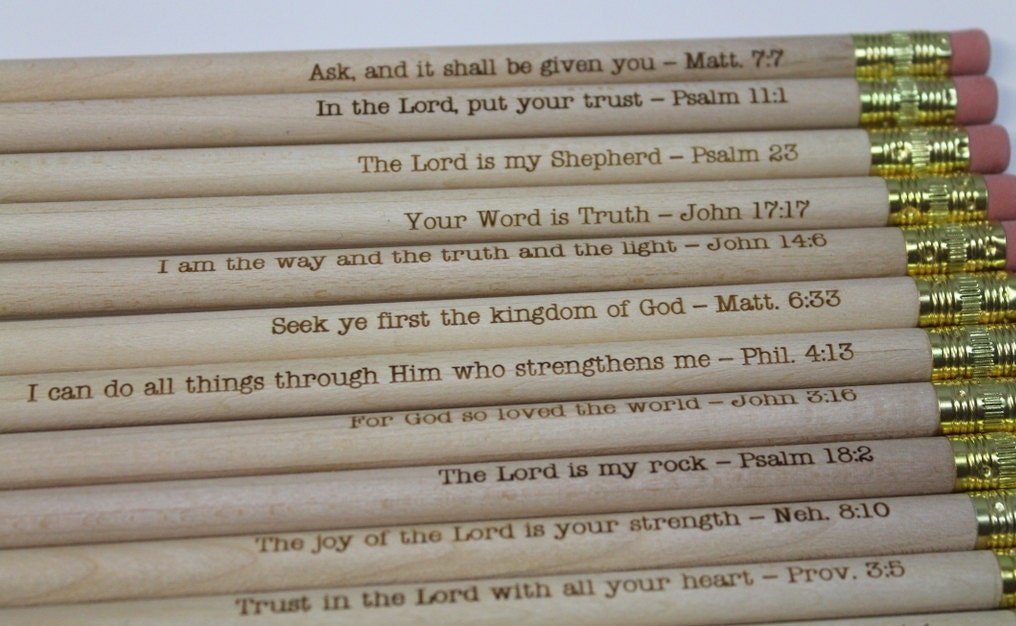 Ask, and it shall be given you – Matt. 7:7
In the Lord, put your trust – Psalm 11:1
The Lord is my Shepherd – Psalm 23
Your Word is Truth – John 17:17
I am the way and the truth and the light – John 14:6
Seek ye first the kingdom of God – Matt. 6:33
I can do all things through Him who strengthens me – Phil. 4:13
For God so loved the world – John 3:16
The Lord is my rock – Psalm 18:2
The joy of the Lord is your strength – Neh. 8:10
Trust in the Lord with all your heart – Prov. 3:5